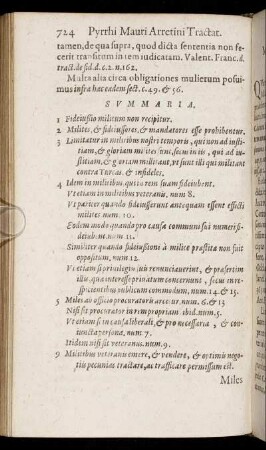 724 Pyrrhi Mauri Arretini Tractat.
tamen, de qua supra, quod dicta sententia non fe-
cerit transitum in rem iudicatam. Valent. Franc. d.
tract. de fid. d. c. 2. n. 162.
Multa alia circa obligationes mulierum posui-
mus infra hac eadem sect. c. 49. & 56.
SVMMARIA.
1 Fideiussio militum non recipitur.
2 Milites, & fideiussores, & mandatores esse prohibentur.
3 Limitatur in militibus nostri temporis, qui non ad insti-
tiam, & gloriam militant, secus in iis, qui ad iu-
stitiam, & gloriam militant, vt sunt illi qui militant
contra Turcas & infideles.
4 Idem in militibus, qui in rem suam fideiubent.
Vt etiam in militibus veteranis, num. 8
Vt pariter quando fideiusserunt antequam essent effecti
milites num. 10.
Eodem modo quando pro causa communi sui numeri fi-
deiub. nt. num. 11.
Similiter quando fideiussioni à milite præstita non fuit
oppositum, num 12.
Vt etiam si priuilegio suis renunciauerint, & præsertim
illis, quæ interesse priuatum concernunt, secus in re-
spicientibus publicum commodum, num. 14. & 15.
5 Miles ab officio procuratoris arcetur. num. 6. & 13
Nisi sit procurator in rem propriam ibid. num. 5.
Vt etiam si in causa liberali, & pro necessaria, & con-
iuncta persona, num. 7.
Itidem nisi sit veteranus. num. 9.
9 Militibus veteranis emere, & vendere, & optimis nego-
tiis pecunias tractare, ac trafficare permissum est.
Miles